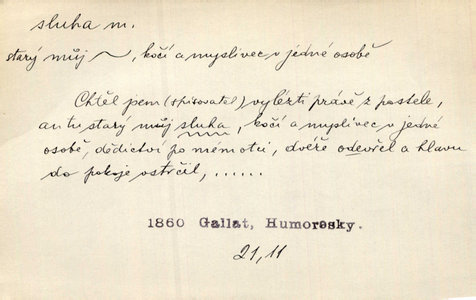 sluha m.
starý můj ~, kočí a myslivec v jedné osobě
Chtěl jsem (spisovatel) vylézti právě z postele,
an tu starý můj sluha, kočí a myslivec v jedné
osobě, dědictví po mém otci, dvéře odevřel a hlavu
do pokoje vstrčil, ......
1860 Gallat, Humoresky.
21, 11